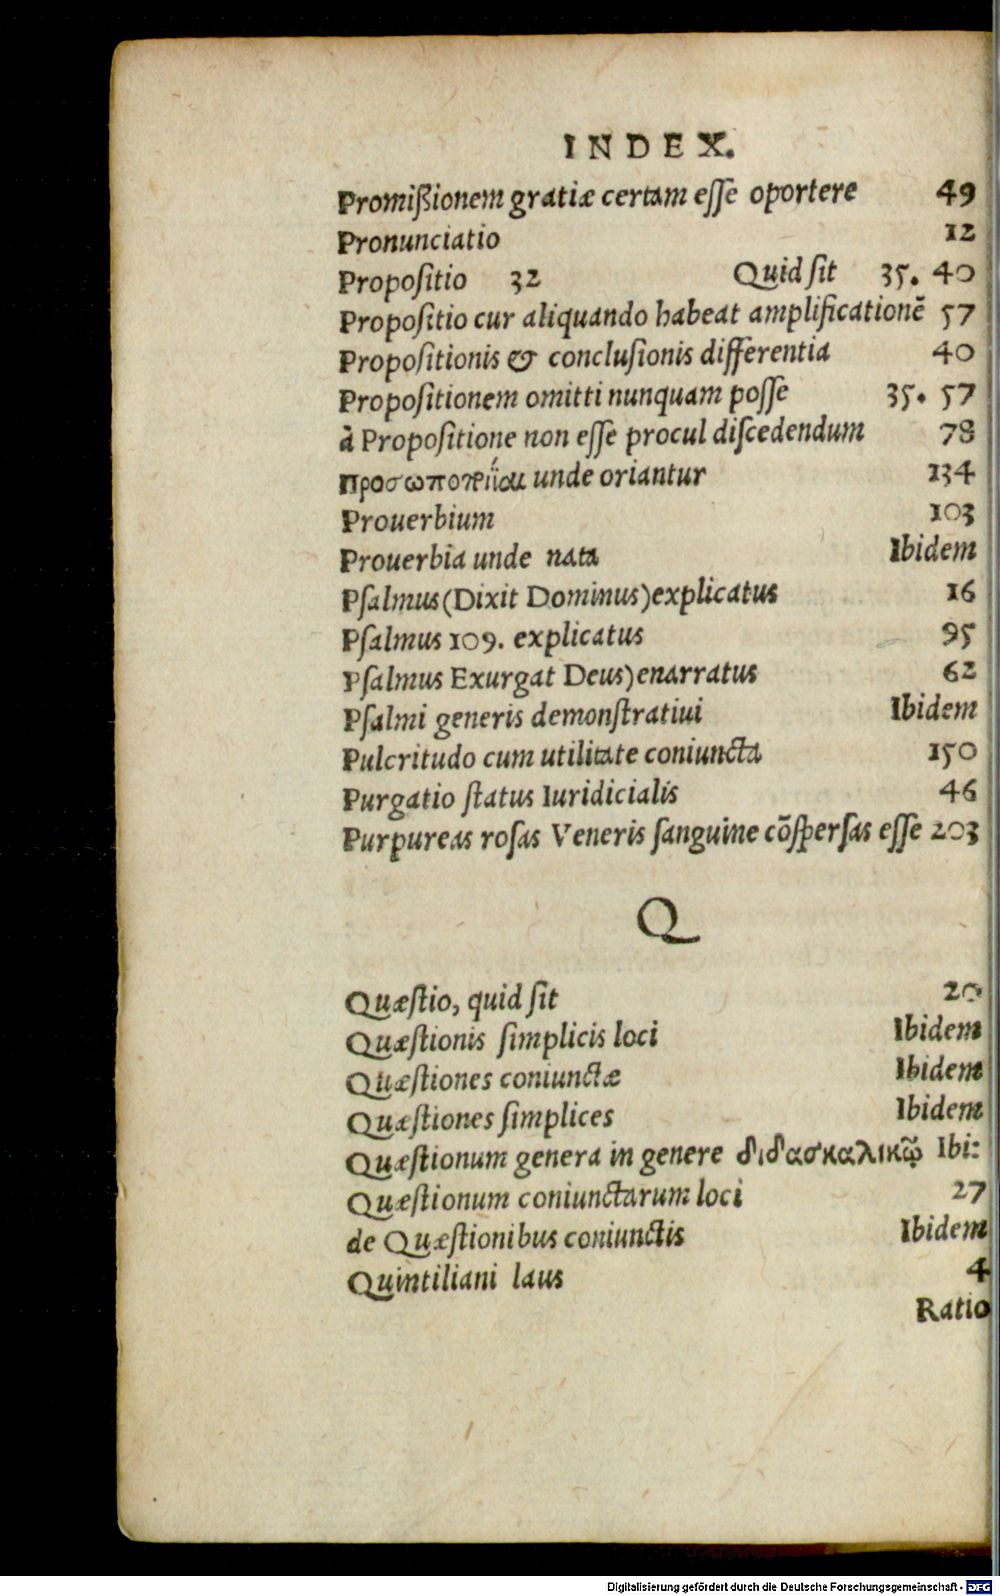 INDEX.
Promißionem gratiæ certam eſſe oportere 49
Pronunciatio 12
Propoſitio 32 Quid ſit 35. 40
Propoſitio cur aliquando habeat amplificationẽ 57
Propoſitionis & concluſionis differentia 40
Propoſitionem omitti nunquam poſſe 35. 57
à Propoſitione non eſſe procul diſcedendum 78
unde oriantur 134
Prouerbium 103
Prouerbia unde nata Ibidem
Pſalmus (Dixit Dominus) explicatus 16
Pſalmus 109. explicatus 95
Pſalmus Exurgat Deus) enarratus 62
Pſalmi generis demonſtratiui Ibidem
Pulcritudo cum utilitate coniuncta 150
Purgatio ſtatus Iuridicialis 46
Purpureas roſas Veneris ſanguine cõſperſas eſſe 203
Q
Quæſtio, quid ſit 20
Quæſtionis ſimplicis loci Ibidem
Quæſtiones coniunctæ Ibidem
Quæſtiones ſimplices Ibidem
Quæſtionum genera in genere διδασκαλικῷ Ibi:
Quæſtionum coniunctarum loci 27
de Quæſtionibus coniunctis Ibidem
Quintiliani laus 4
Ratio
Digitalisierung gefördert durch die Deutsche Forschungsgemeinschaft - DFG